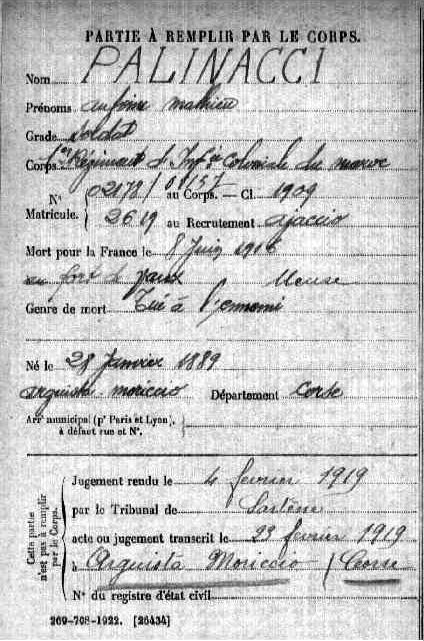 PARTIE À REMPLIR PAR LE CORPS.
Nom PALINACCI
Prénoms antoine mathieu
Grade Soldat
Corps 1er Régiment d'Infie Coloniale du maroc
N° 02178/ 00157 au Corps. — Cl. 1909
Matricule. 2619 au Recrutement ajaccio
Mort pour la France le 8 Juin 1916
au fort de vaux Meuse
Genre de mort Tué à l'ennemi
Né le 28 Janvier 1889
arguista moriccio Département Corse
Arrt municipal (pr Paris et Lyon),
à défaut rue et N°.
Cette partie
n'est pas à remplir
par le Corps.
Jugement rendu le 4 fevrier 1919
par le Tribunal de Sartène
acte ou jugement transcrit le 23 fevrier 1919
à Arguista Moriccio (Corse
N° du registre d'état civil
269-708-1922. [26434]